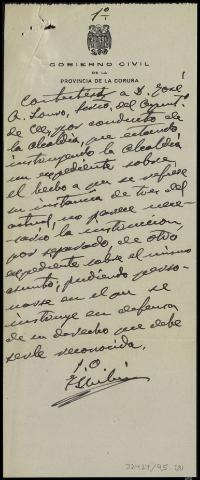 1º
GOBIERNO CIVIL
DE LA
PROVINCIA DE LA CORUÑA
Contéstese a D. José
A. Louro, Srio. del Ayunt.
de Cee, por conducto de
la Alcaldía, que estando
instruyendo la Alcaldía
un expediente sobre
el hecho a que se refiere
su instancia de tres del
actual, no parece nece-
sario la instrucción
por separado, de otro
expediente sobre el mismo
asunto, pudiendo perso-
narse en el que se
instruye en defensa
de su derecho que debe
serle reconocido.
P.O
32424/95